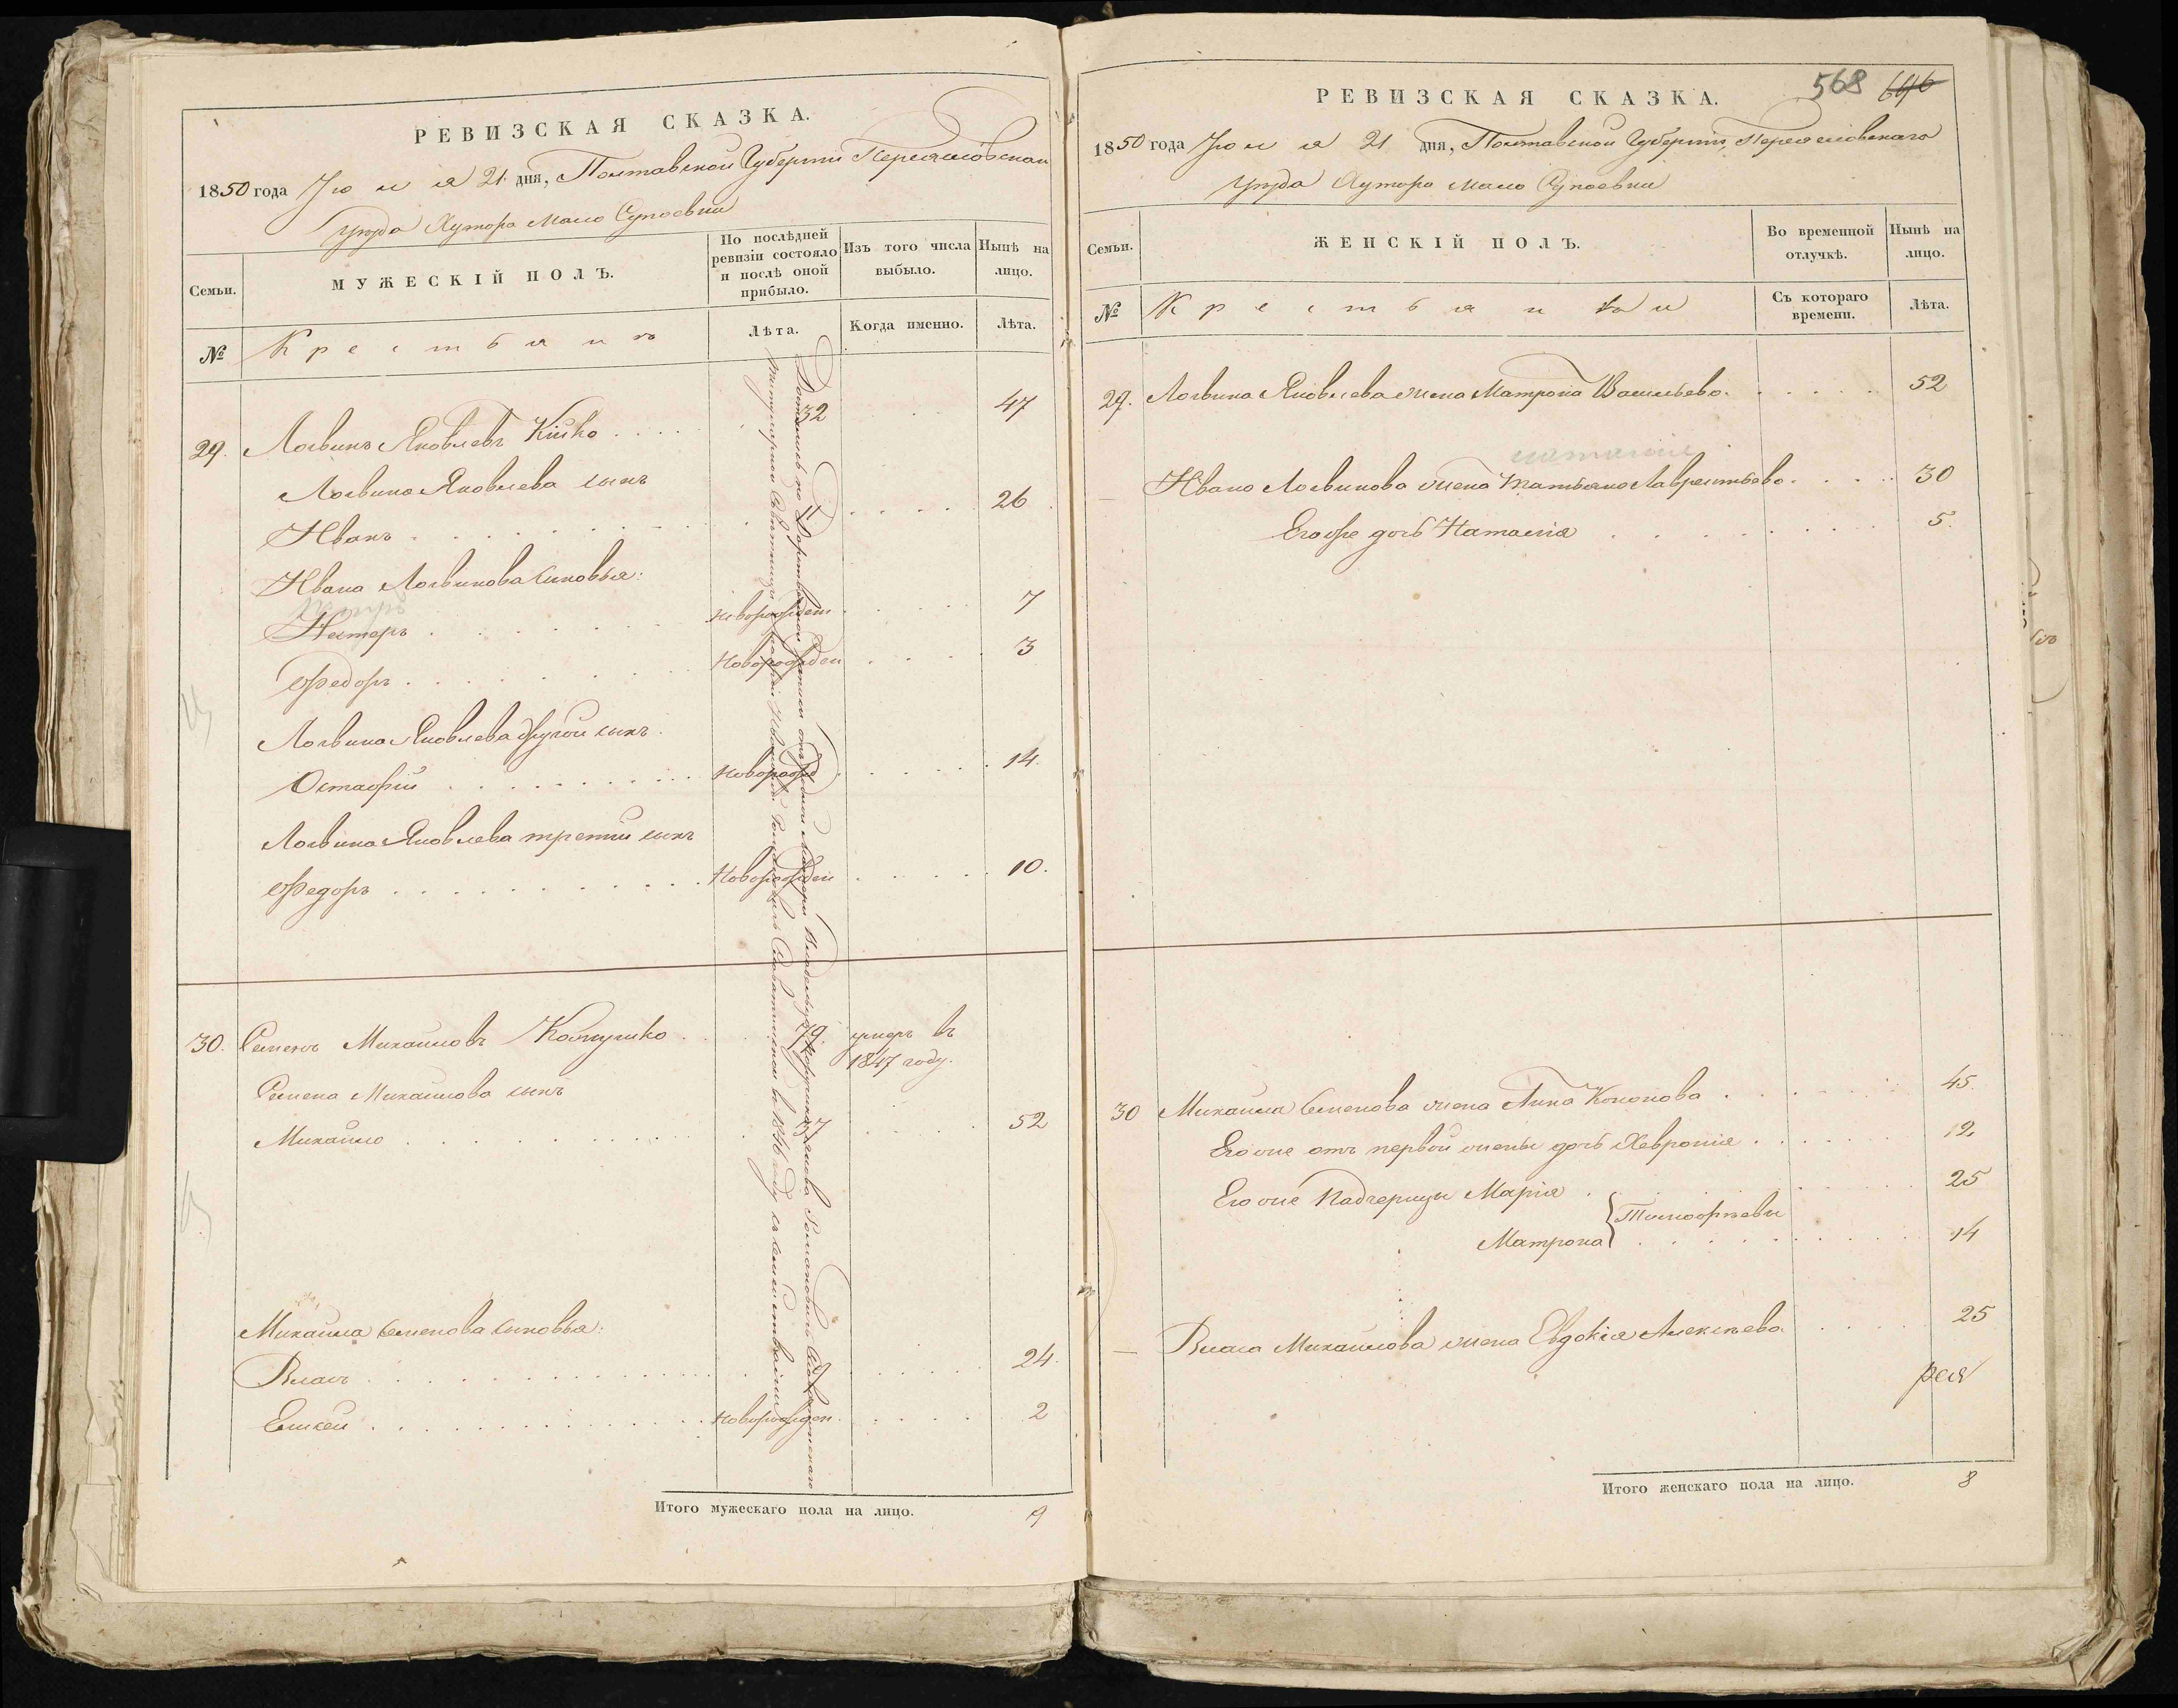 РЕВИЗСКАЯ СКАЗКА.
1850 года Іюля 21 дня, Полтавской Губерніи Переяславскаго
уѣзда Хутора Мало Супоевки
Семьи.
МУЖЕСКІЙ ПОЛЪ.
По послѣдней ревизіи состояло и послѣ оной прибыло.
Изъ того числа выбыло.
Нынѣ на лицо.
№
Крестьянъ
Лѣта.
Когда именно.
Лѣта.
29. Логвинъ Яковлевъ Кійко 32 47
Логвина Яковлева сынъ
Иванъ 11 26
Ивана Логвинова сыновья:
Нестеръ Новорожден 7
Федоръ Новорожден 3
Логвина Яковлева другой сынъ
Остафій Новорожд 14.
Логвина Яковлева третій сынъ
Федоръ Новорожден 10.
30. Семенъ Михайловъ 79 умеръ въ
1847 году.
Семена Михайлова сынъ
Михайло 37 52
Михайла Семенова сыновья:
Власъ 24.
Елисей Новорожден 2
Достались по Дарственной записи отъ родной Матери
Титулярной Совѣтницы въ 1846 году съ семействами
Итого мужескаго пола на лицо. 9
568 646
РЕВИЗСКАЯ СКАЗКА.
1850 года Іюля 21 дня, Полтавской Губерніи, Переяславскаго
уѣзда Хутора Мало Супоевки
Семьи.
ЖЕНСКІЙ ПОЛЪ.
Во временной отлучкѣ.
Нынѣ на лицо.
№
Крестьянки
Съ котораго времени.
Лѣта.
29. Логвина Яковлева жена Матрона Васильева. 52
Ивана Логвинова жена Татьяна Лаврентьева. 30
Его же дочь Наталія 5.
30 Михайла Семенова жена Анна Кононова 45.
Его же отъ первой жены дочь Хевронія 12
Его же Падчерицы Марія 25
Тимофѣевы
Матрона 14
Власа Михайлова жена Евдокія Алексѣева 25
Итого женскаго пола на лицо. 8